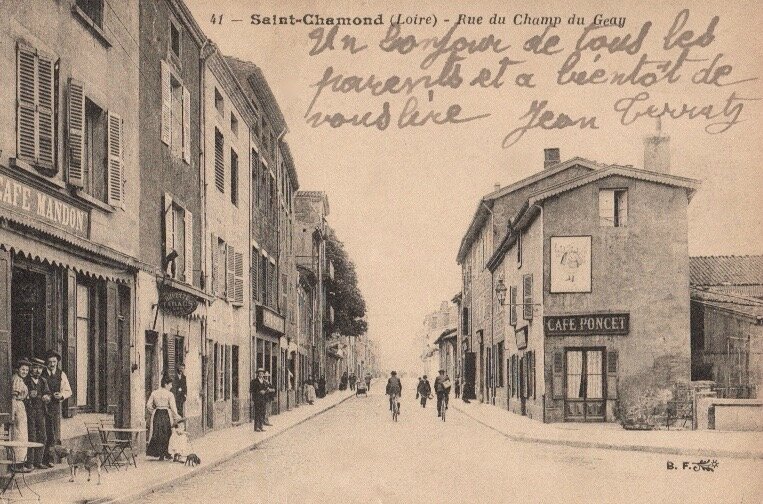 41 — Saint-Chamond (Loire) - Rue du Champ du Geay
Un bonjour de tous les
parents et a bientôt de
vous lire Jean
CAFE MANDON
CAFE PONCET
B. F.